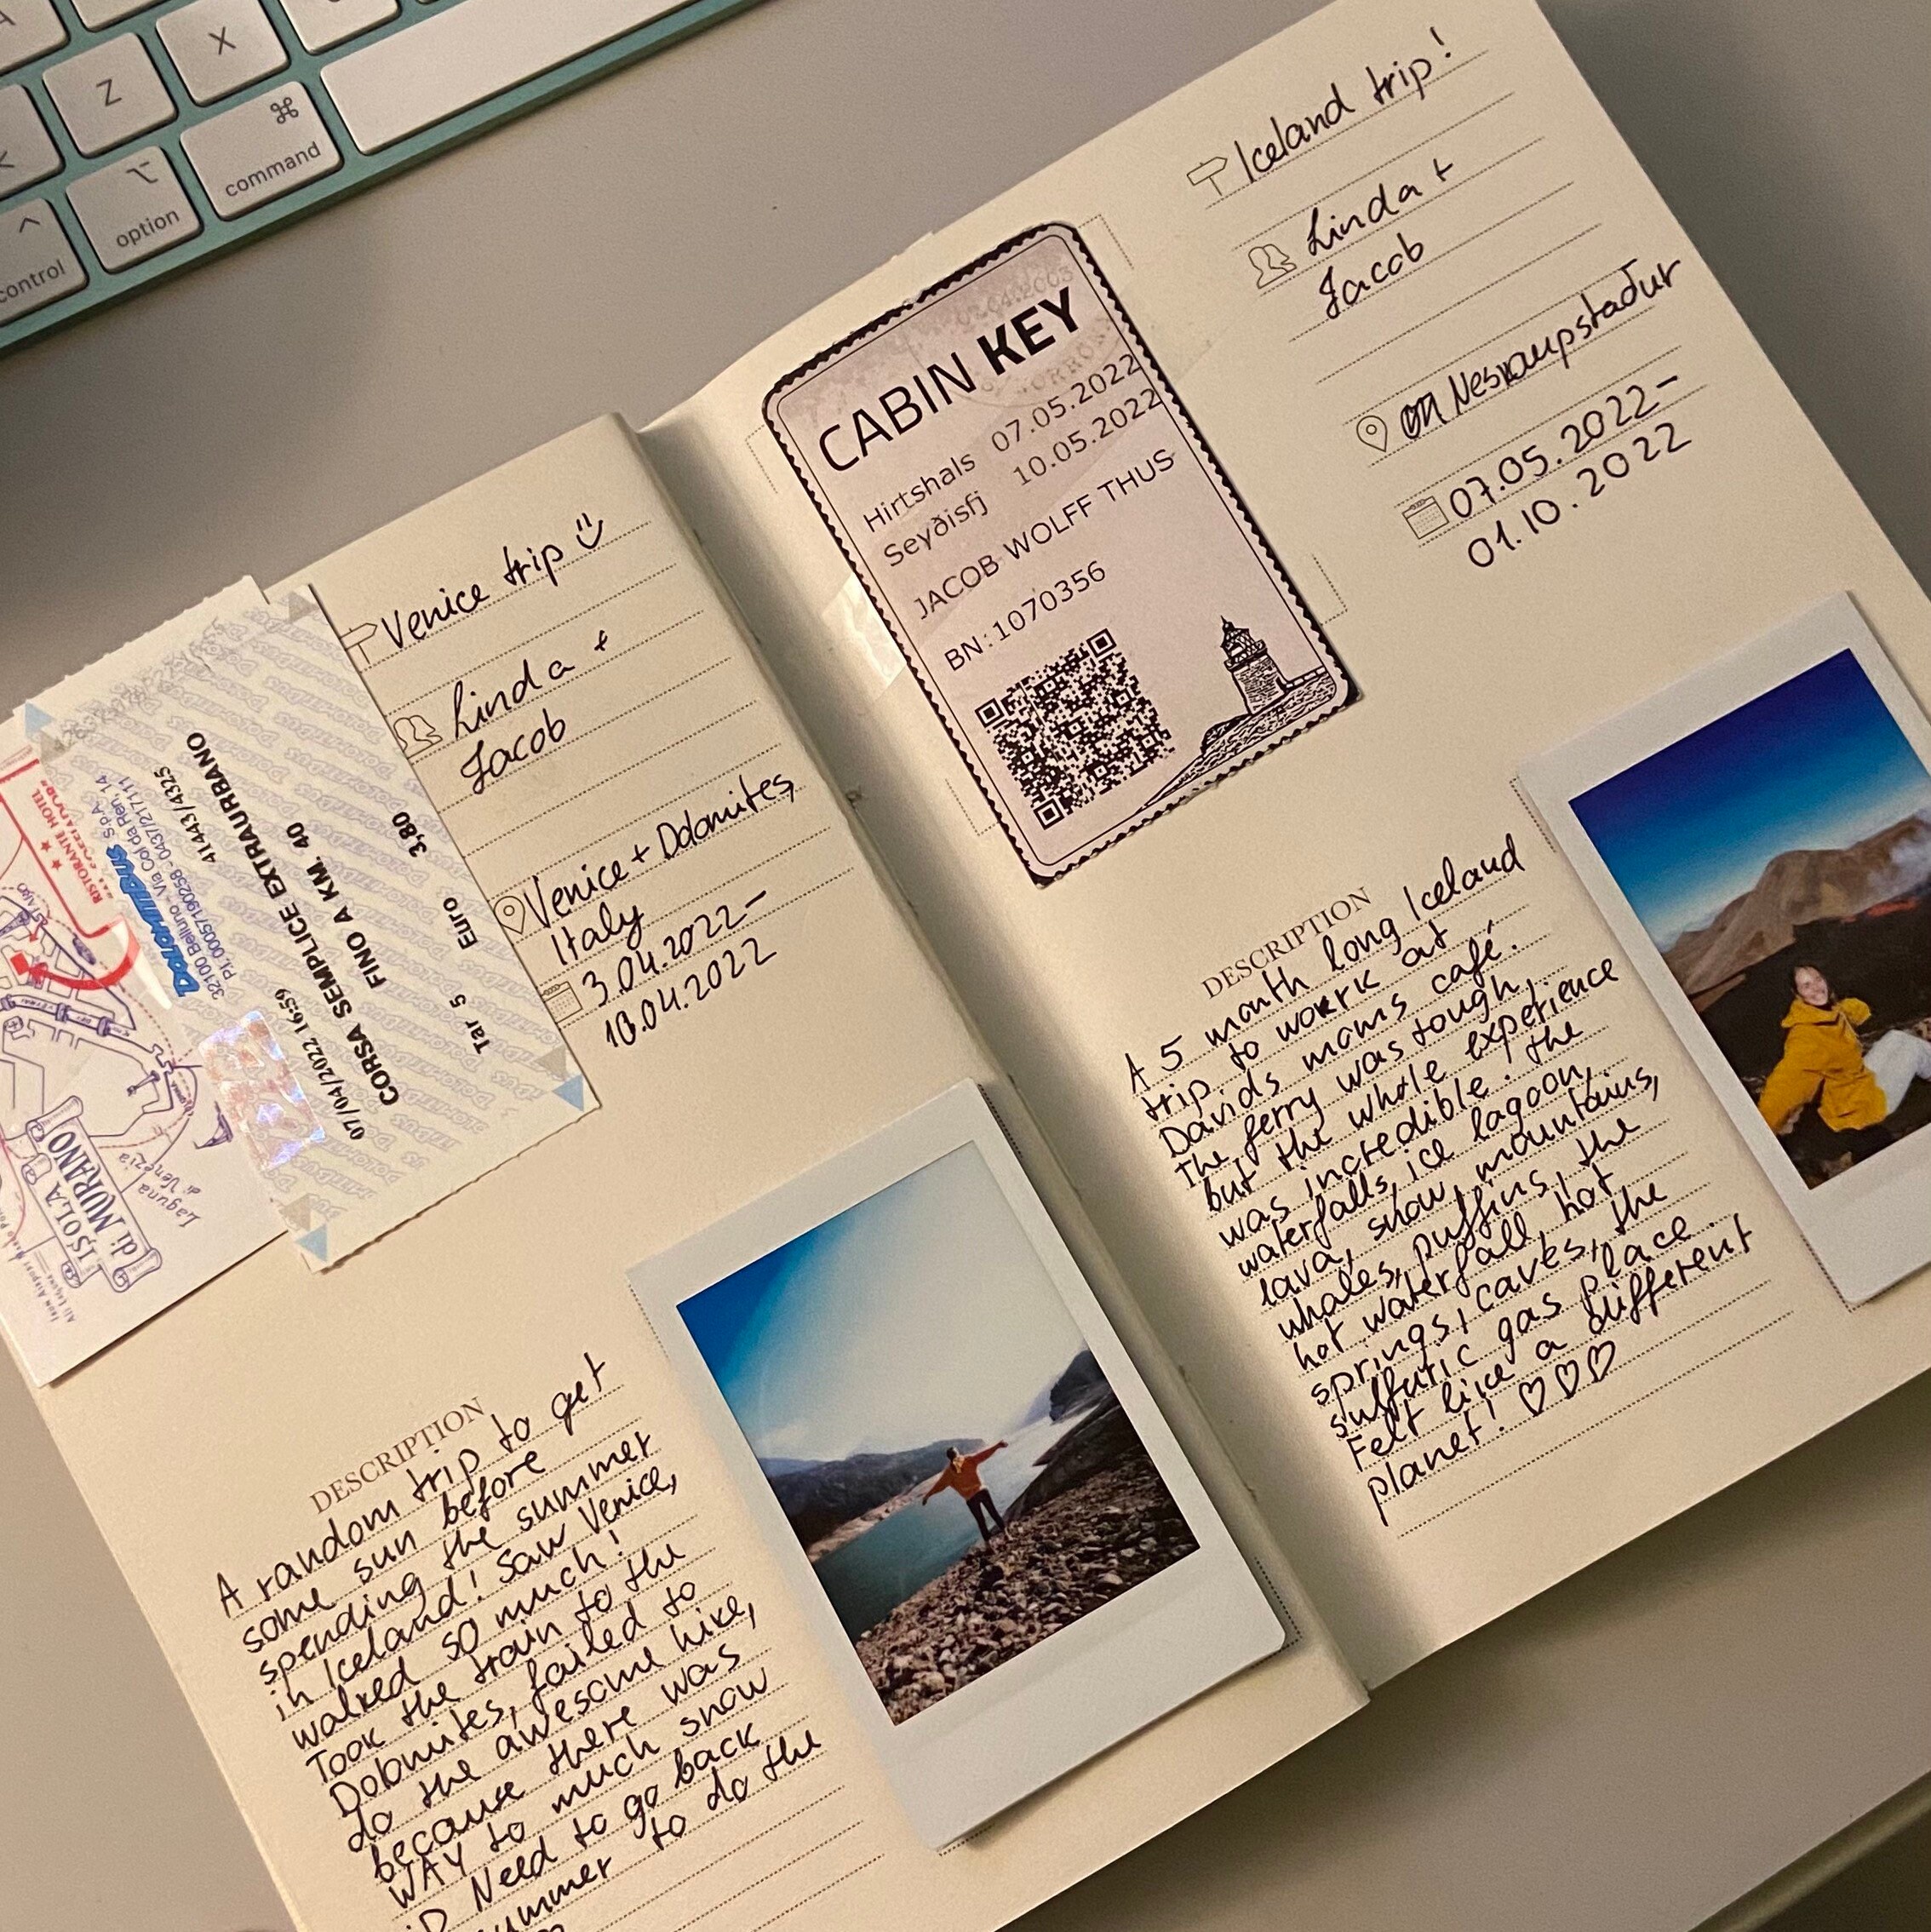 Z
X
⌘
command
⌥
option
^
control
Venice trip
Linda +
Jacob
Venice + Dolomites,
Italy
3.04.2022-
10.04.2022
RISTORANTE HOTEL
ISOLA
di MURANO
Laguna
di Venezia
DolomitiBus S.p.A.
32100 Belluno - Via Col da Ren, 14
P.I. 00057190258 - 0437/217111
41443/4325
07/04/2022 16:59
CORSA SEMPLICE EXTRAURBANO
FINO A KM. 40
Tar 5 Euro 3,80
DESCRIPTION
A random trip to get
some sun before
spending the summer
in Iceland! Saw Venice,
walked so much!
Took the train to the
Dolomites, failed to
do the awesome hike,
because there was
WAY to much snow
:D Need to go back
summer to do the
Iceland trip!
Linda +
Jacob
Neskaupstaður
07.05.2022-
01.10.2022
CABIN KEY
Hirtshals 07.05.2022
Seyðisfj 10.05.2022
JACOB WOLFF THUS
BN:1070356
DESCRIPTION
A 5 month long Iceland
trip to work at
Davids moms café.
The ferry was tough,
but the whole experience
was incredible. The
waterfalls, ice lagoon,
lava, snow, mountains,
whales, puffins, the
hot waterfall, hot
springs, caves, the
sulfuric gas place.
Felt like a different
planet! ♡♡♡